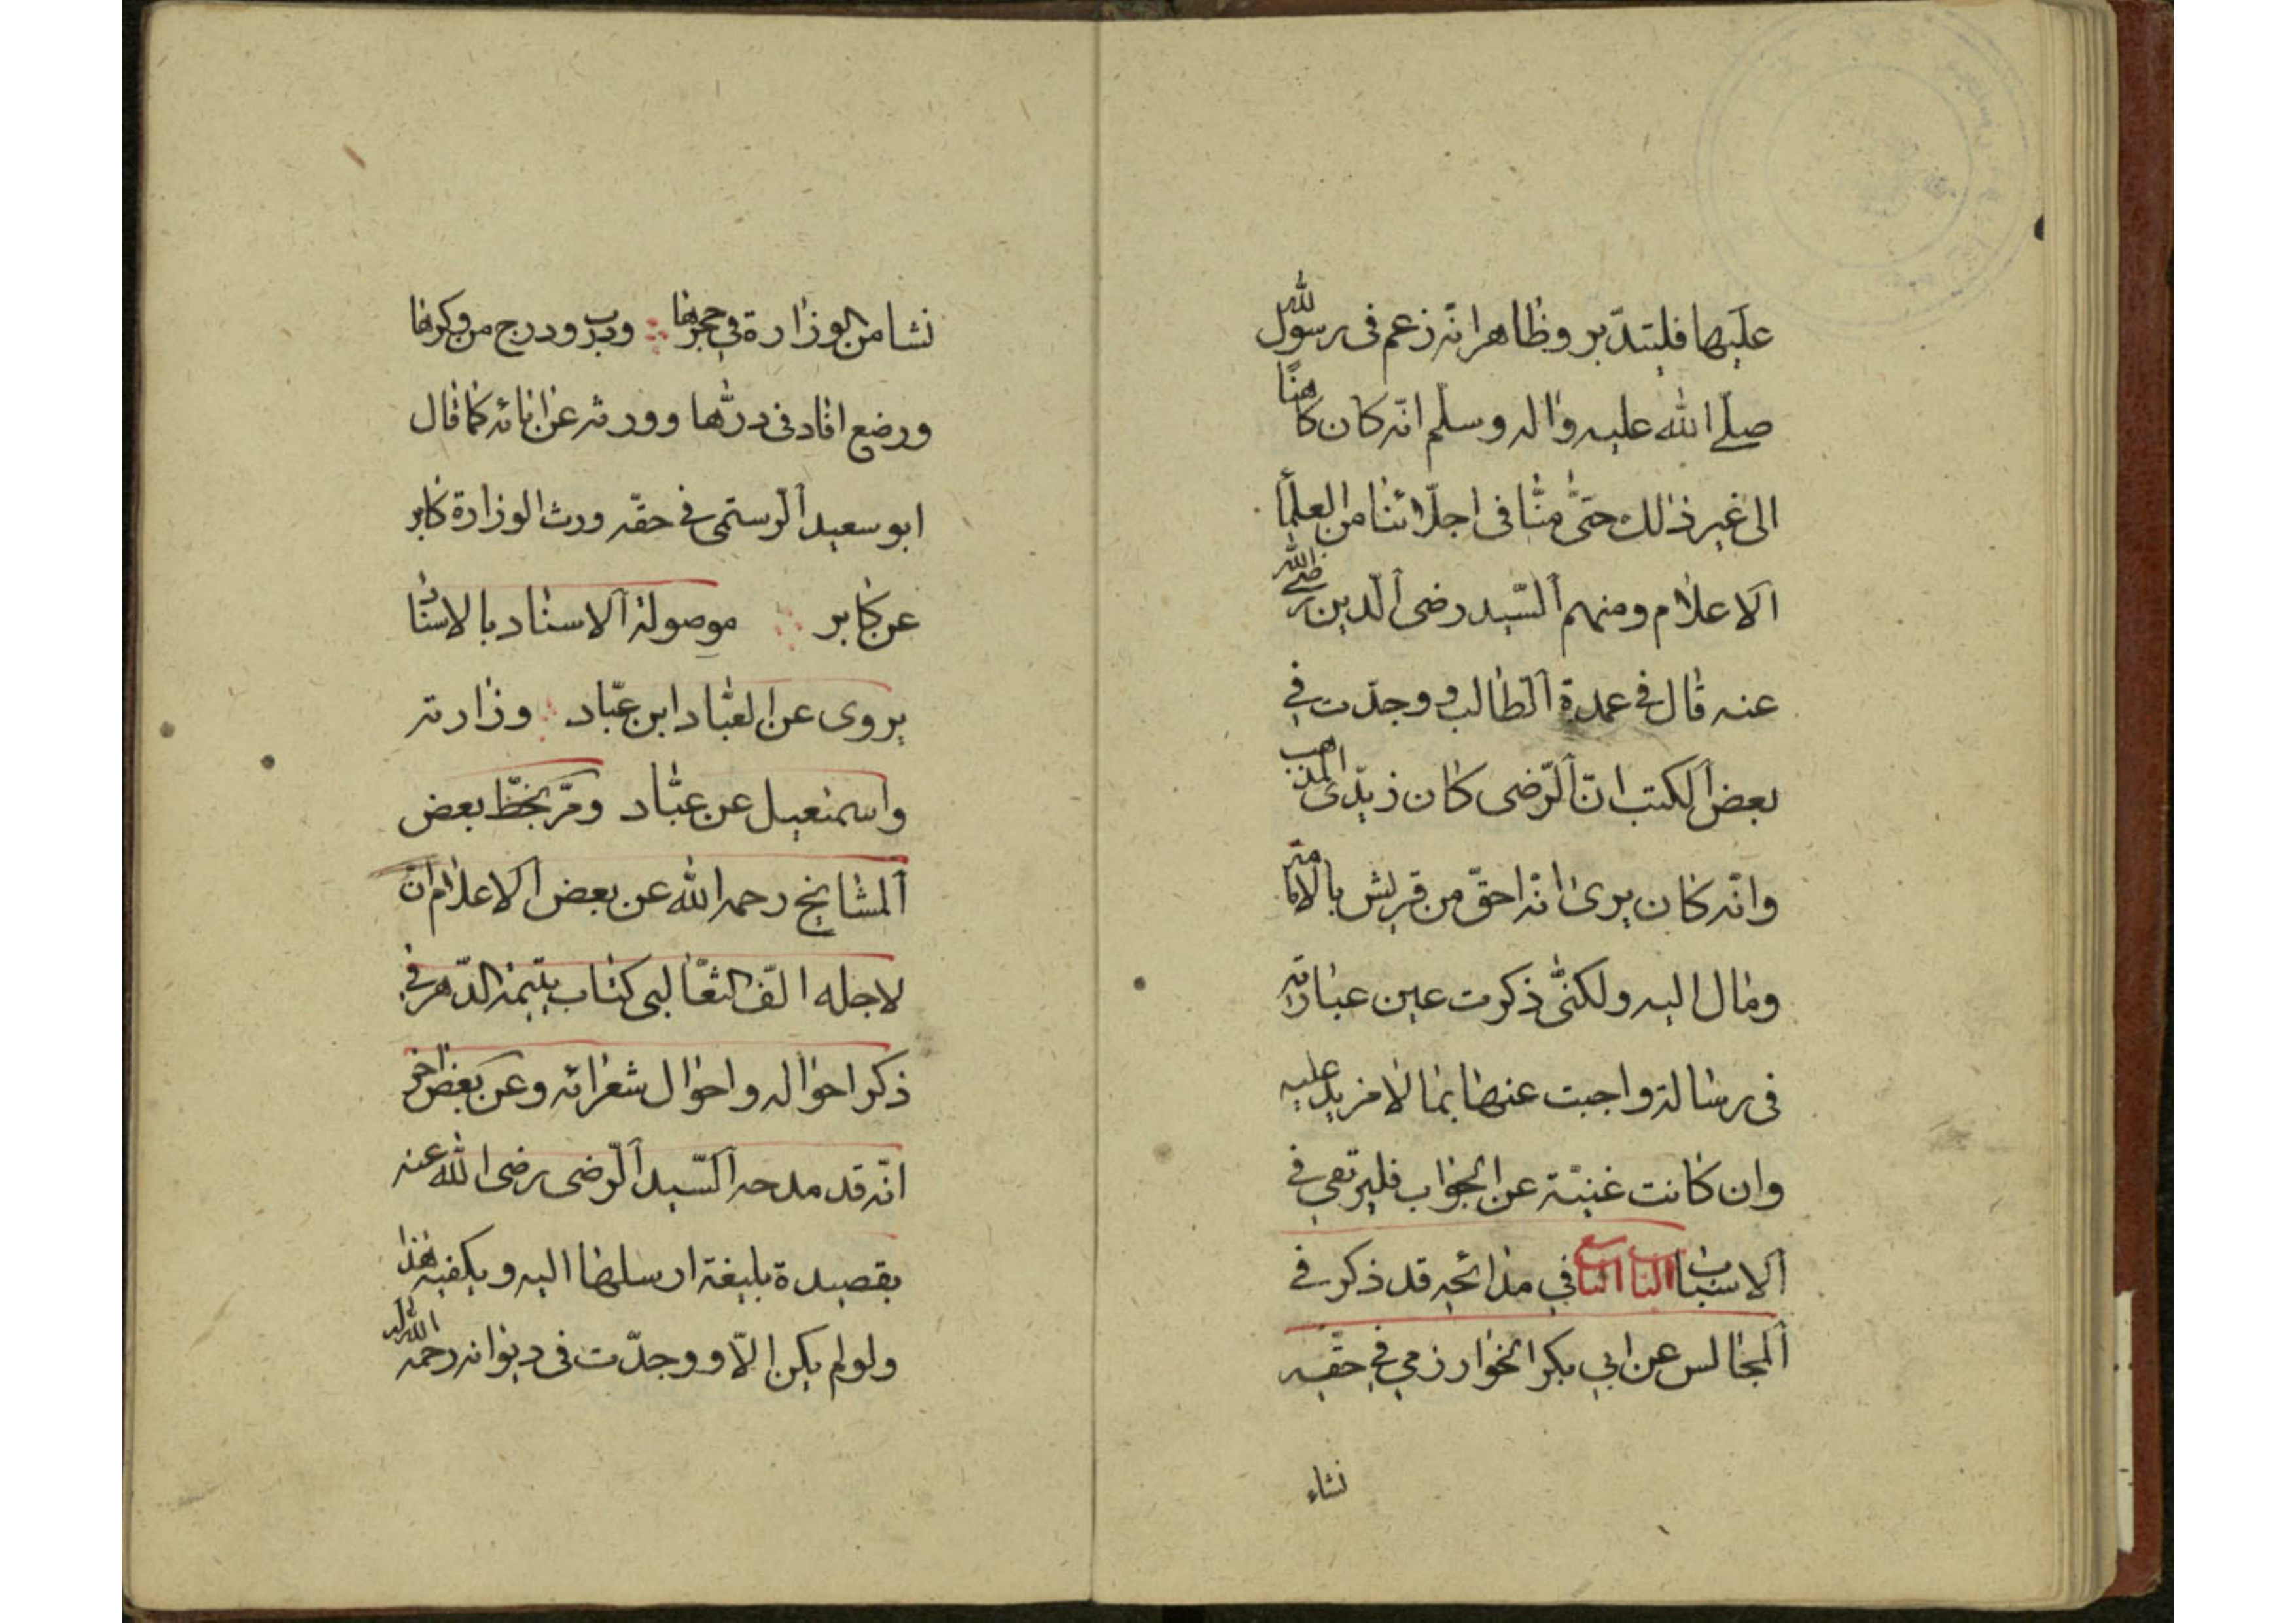 عليها فليتدبر وظاهرا انه زعم فى رسول الله
صلى الله عليه واله وسلم انه كان كاهنا
الى غير ذلك حتى منا فى اجلائنا من العلما
الاعلام ومنهم السيد رضى الدين رضى الله
عنه قال فى عمدة الطالب ووجدت في
بعض الكتب ان الرضى كان زيدى المذهب
وانه كان يرى انه احق من قريش بالامامة
ومال اليه ولكنى ذكرت عين عبارته
فى رسالة واجبت عنها بما لا مزيد عليه
وان كانت غنية عن الجواب فليرتقي في
الاسباب الباب التاسع في مدائحه قد ذكر في
المجالس عن ابي بكر الخوارزمي في حقه
نشاء
نشا من الوزارة في حجرها ودب ودرج من وكرها
ورضع افاد فى درها وورثه عن ابائه كما قال
ابو سعيد الرستمى في حقه ورث الوزارة كابر
عن كابر موصولة الاسناد بالاسناد
يروى عن العباد ابن عباد وزارته
واسمعيل عن عباد ومر بخط بعض
المشايخ رحمه الله عن بعض الاعلام ان
لاجله الف الثعالبى كتاب يتيمة الدهر في
ذكر احواله واحوال شعرائه وعن بعض اخر
انه قد مدحه السيد الرضى رضى الله عنه
بقصيدة بليغة ارسلها اليه ويكفيه هذا
ولو لم يكن الا ووجدت فى ديوانه رحمه الله